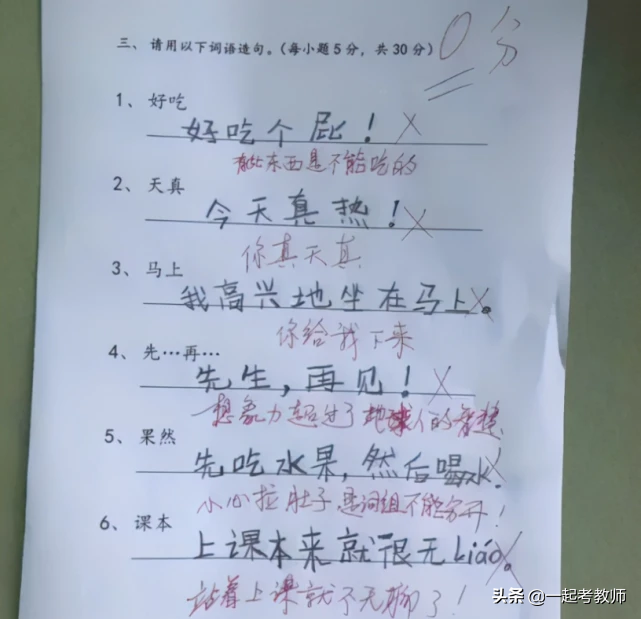 三、请用以下词语造句。(每小题5分，共30分)
0分
1、好吃
好吃个屁！
有些东西是不能吃的
2、天真
今天真热！
你真天真
3、马上
我高兴地坐在马上。
你给我下来
4、先…再…
先生，再见！
想象力超过了地球人的智慧
5、果然
先吃水果，然后喝水。
小心拉肚子，是词组不能分开！
6、课本
上课本来就很无Liáo。
站着上课就不无聊了！
头条 @一起考教师